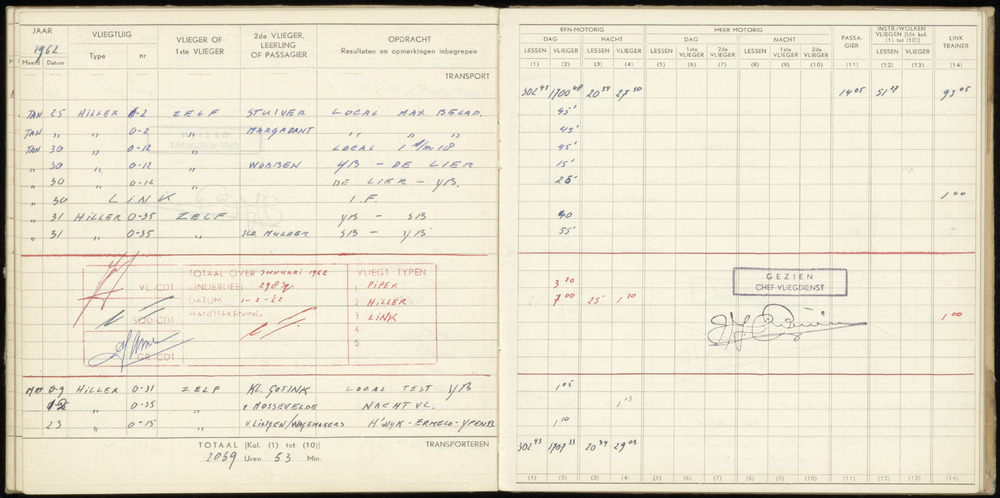 JAAR VLIEGTUIG VLIEGER OF 1ste VLIEGER 2de VLIEGER, LEERLING OF PASSAGIER OPDRACHT Resultaten en opmerkingen inbegrepen
1962
Maand Datum Type nr
TRANSPORT
JAN 25 HILLER O-2 ZELF STUIVER LOCAL MAX BELAD.
JAN " " O-2 " MARGADANT " " "
JAN 30 " O-12 " LOCAL 1 t/m 18
" 30 " O-12 " WOBBEN YB - DE LIER
" 30 " O-12 " DE LIER - YB.
" 30 LINK I.F.
" 31 HILLER O-35 ZELF YB - SB
" 31 " O-35 " MULDER SB - YB
TOTAAL OVER JANUARI 1962 VLIEGT TYPEN
VL.CDT ONDERDEEL 298 1 PIPER
DATUM 1-2-62 2 HILLER
SQD.CDT HANDTEKENING 3 LINK
4
GR.CDT 5
MRT 9 HILLER O-31 ZELF KL. GOTINK LOCAL TEST YB
12 " O-35 " ROSSEVELDE NACHT VL.
23 " O-15 " V LINGEN/WAGEMAKERS H'WIJK - ERMELO - YPENB
TOTAAL (Kol. (1) tot (10)) TRANSPORTEREN
2059 Uren 53 Min.
EEN-MOTORIG MEER MOTORIG PASSA-GIER INSTR/WOLKEN VLIEGEN (Uit kol. (1) tot (10)) LINK TRAINER
DAG NACHT DAG NACHT
LESSEN VLIEGER LESSEN VLIEGER LESSEN 1ste VLIEGER 2de VLIEGER LESSEN 1ste VLIEGER 2de VLIEGER LESSEN VLIEGER
(1) (2) (3) (4) (5) (6) (7) (8) (9) (10) (11) (12) (13) (14)
302 43 1700 48 20 34 27 30 14 05 51 93 05
45'
45'
45'
15'
25'
1 00
40
55'
3 20
7 00 25' 1 30 1 00
GEZIEN
CHEF-VLIEGDIENST
1 05
1 10
302 43 1707 33 20 34 29 03
(1) (2) (3) (4) (5) (6) (7) (8) (9) (10) (11) (12) (13) (14)